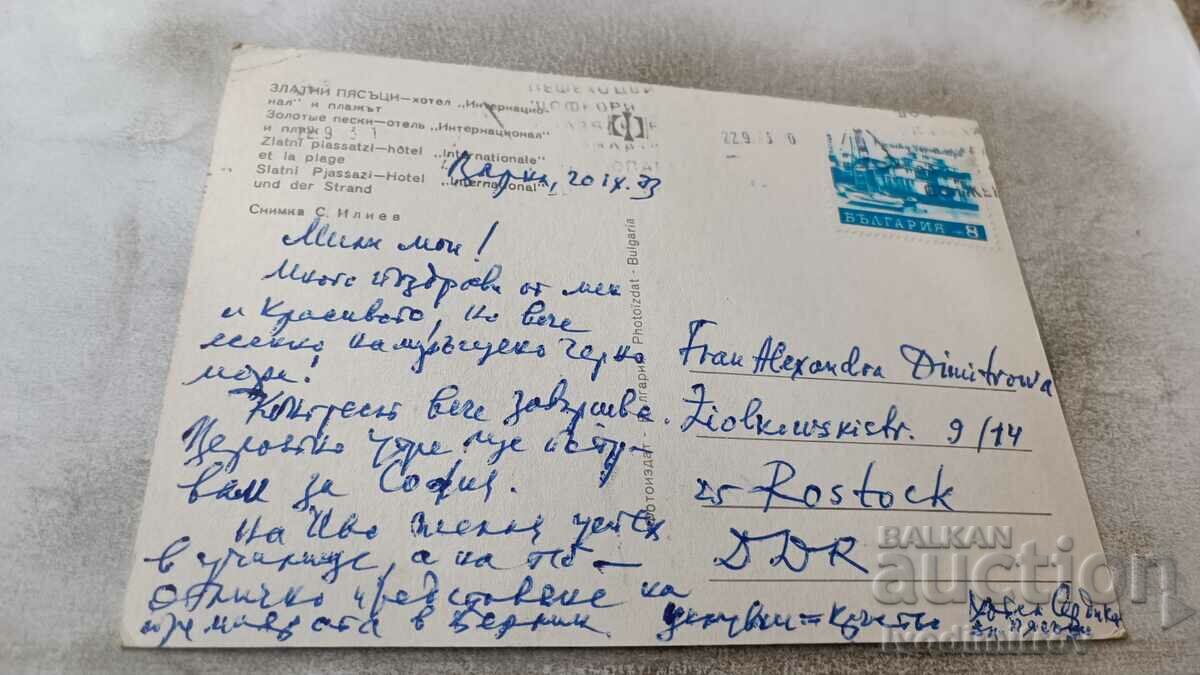 ЗЛАТНИ ПЯСЪЦИ—хотел „Интернацио-
нал" и плажът
Золотые пески—отель „Интернационал"
и пляж
Zlatni piassatzi—hôtel "Internationale"
et la plage
Slatni Pjassazi-Hotel "International"
und der Strand
Снимка С. Илиев
Варна, 20 IX.73
Мили мои!
Много поздрави от мен
и красивото, но вече
леко намръщено Черно
море!
Конгресът вече завършва.
Вероятно утре ще отпъту-
вам за София.
На Иво желая успех
в училище, а на теб —
отлично представяне на
премиерата в Берлин.
Фотоиздат - България Photoizdat - Bulgaria
22.9
БЪЛГАРИЯ 8
Frau Alexandra Dimitrowa
Ziolkowskistr. 9/14
25 Rostock
DDR
BALKAN
auction
ivodimitrov